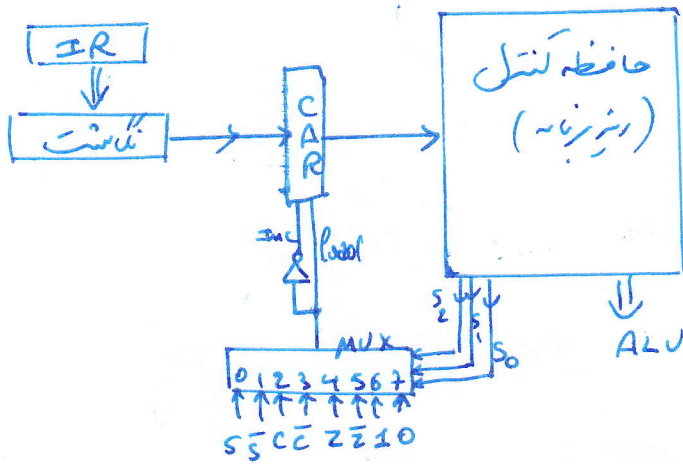 IR
نگاشت
CAR
حافظه کنترل
(ریزبرنامه)
INC
load
S2
S1
S0
ALU
MUX
0 1 2 3 4 5 6 7
S S̅ C C̅ Z Z̅ 1 0